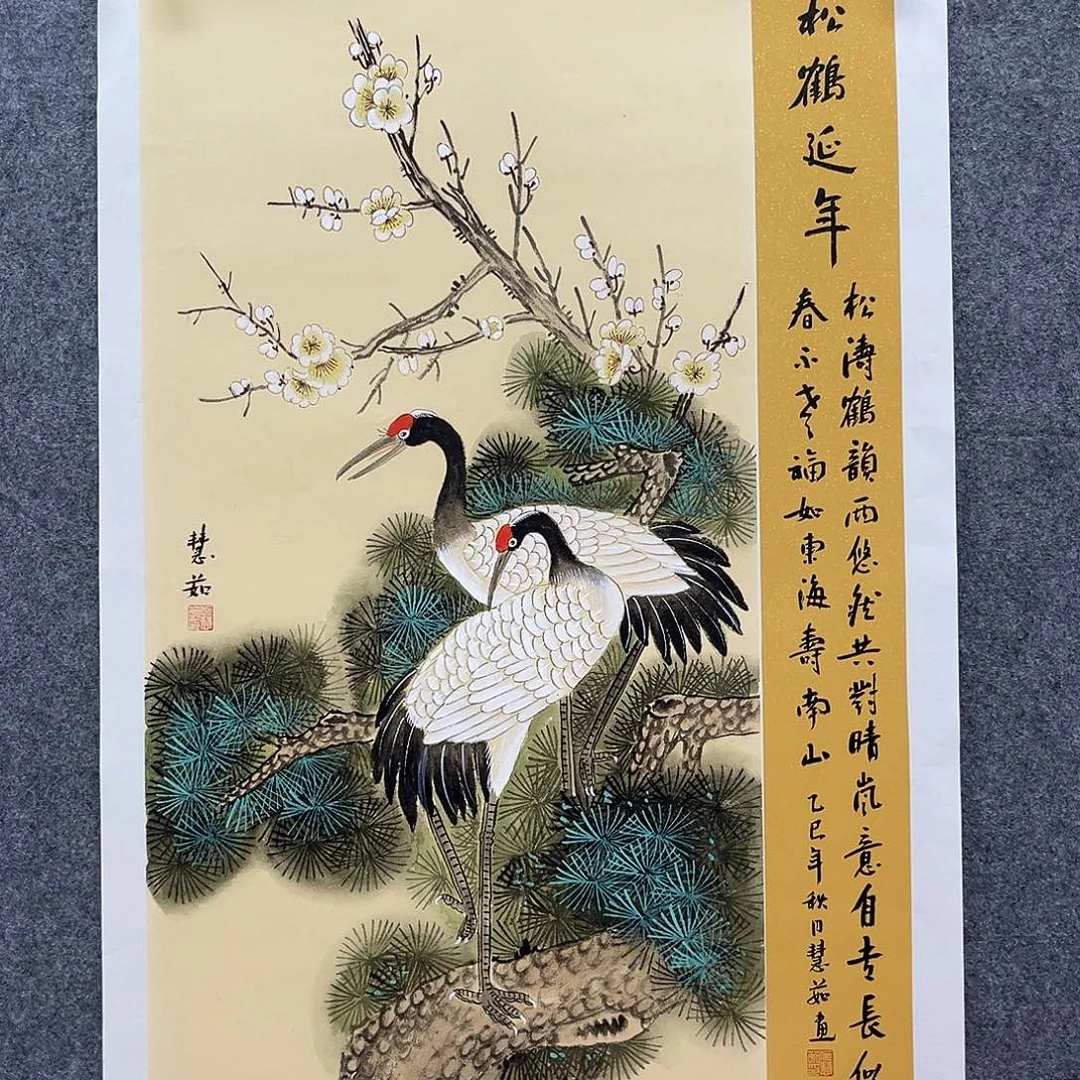 松鶴延年
松濤鶴韻兩悠然共對晴嵐意自長似
春不老福如東海壽南山
乙巳年秋月慧茹画
慧茹